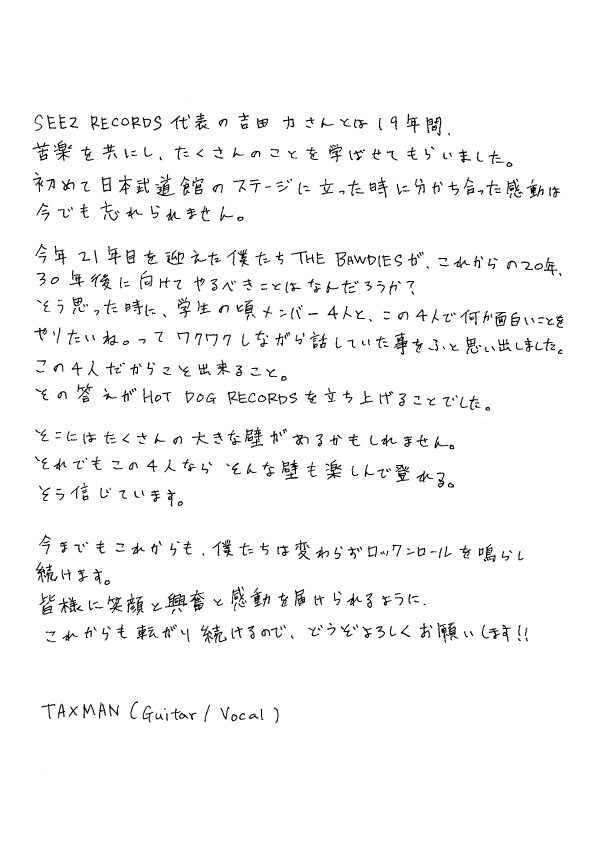 SEEZ RECORDS 代表の吉田 力さんとは19年間、
苦楽を共にし、たくさんのことを学ばせてもらいました。
初めて日本武道館のステージに立った時に分かち合った感動は
今でも忘れられません。
今年21年目を迎えた僕たちTHE BAWDIESが、これからの20年、
30年後に向けてやるべきことはなんだろうか?
そう思った時に、学生の頃メンバー4人と、この4人で何か面白いことを
やりたいね。ってワクワクしながら話していた事をふと思い出しました。
この4人だからこそ出来ること。
その答えがHOT DOG RECORDSを立ち上げることでした。
そこにはたくさんの大きな壁があるかもしれません。
それでもこの4人なら そんな壁も楽しんで登れる。
そう信じています。
今までもこれからも、僕たちは変わらずロックンロールを鳴らし
続けます。
皆様に笑顔と興奮と感動を届けられるように、
これからも転がり続けるので、どうぞよろしくお願いします!!
TAXMAN (Guitar / Vocal)